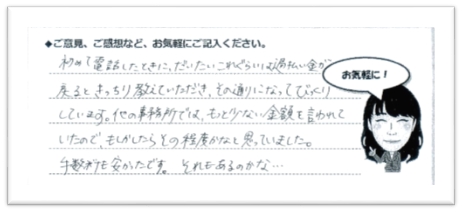 ◆ご意見、ご感想など、お気軽にご記入ください。
初めて電話したときに、だいたいこれぐらいは過払い金が
戻ると きっちり教えていただき、その通りになってびっくり
しています。他の事務所では、もっと少ない金額を言われて
いたので、もしかしたらその程度かなと思っていました。
手数料も安かったです。 それもあるのかな…
お気軽に!